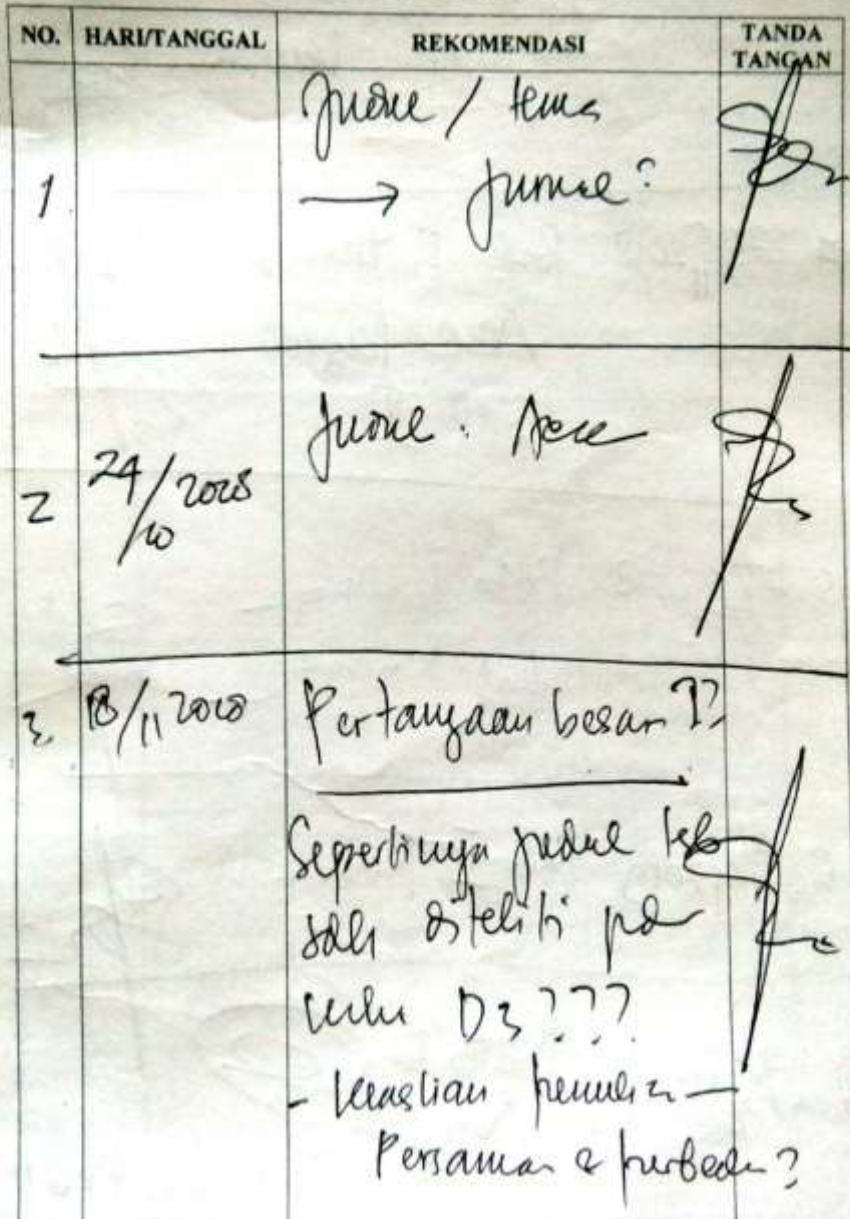 NO. HARI/TANGGAL REKOMENDASI TANDA TANGAN
1 Judul / tema
→ Jurnal?
2 24/10 Judul. Acc
3. 18/11 Pertanyaan besar??
Sepertinya judul tsb
sdh diteliti pd
D3???
- Keaslian penulisan
Persamaan & perbedaan?